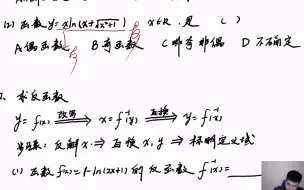 (2) 函数 y = x ln(x+√(x²+1)) x∈R 是 ( )
A 偶函数 B 奇函数 C 非奇非偶 D 不确定
求反函数
y = f(x) ⟹改写 x = f⁻¹(y) ⟹互换 y = f⁻¹(x)
反解 x → 互换 x, y → 标明定义域
(1) 函数 f(x) = 1-ln(2x+1) 的反函数 f⁻¹(x) =